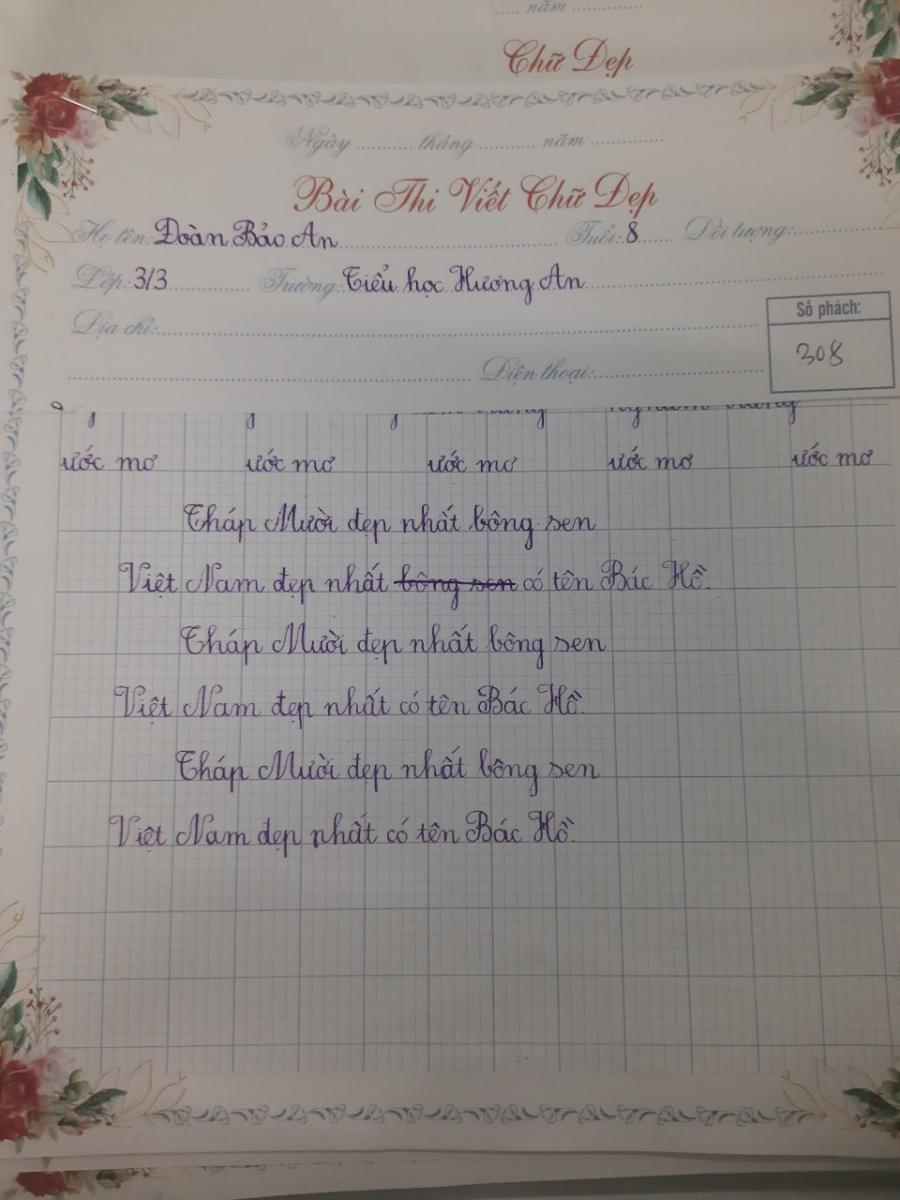 năm
Chữ Đẹp
Ngày tháng năm
Bài Thi Viết Chữ Đẹp
Họ tên: Đoàn Bảo An Tuổi: 8 Đối tượng:
Lớp: 3/3 Trường: Tiểu học Hương An
Địa chỉ:
Số phách:
308
Điện thoại:
ước mơ ước mơ ước mơ ước mơ ước mơ
Tháp Mười đẹp nhất bông sen
Việt Nam đẹp nhất bông sen có tên Bác Hồ.
Tháp Mười đẹp nhất bông sen
Việt Nam đẹp nhất có tên Bác Hồ.
Tháp Mười đẹp nhất bông sen
Việt Nam đẹp nhất có tên Bác Hồ.